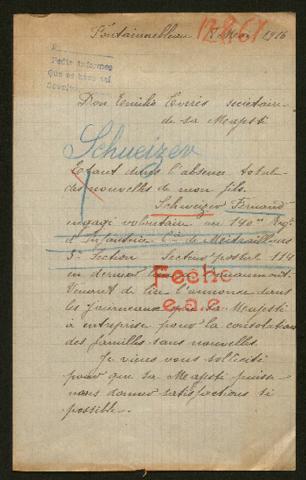 Fontainebleau 1916
Pedir informes
que se hace así
Don Emilio Torrès secrétaire
de sa Majesti
Schueizer
Etant dans l'absence total
des nouvelles de mon fils.
Schweizer Fernand
engagi volontaire au 140me Regt
d'Infanterie Cie de Mitrailleurs
3e Section Secteur postal 114
en dernier lieu Douaumont.
Venant de lire l'annonce dans
les journeaux que sa Majesti
à entreprise pour la consolation
des familles sans nouvelles.
Fecho
e.a.e.
Je viens vous sollicité
pour que sa Majesti puisse
nous donner satisfactions si
possible.